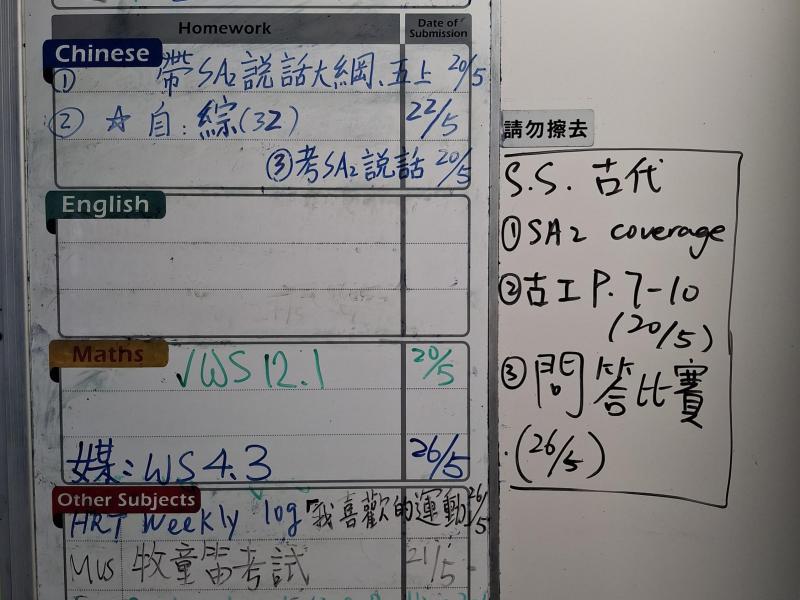 Homework Date of Submission
Chinese
① 帶SA2說話大綱、五上 20/5
② ☆ 自:綜(32) 22/5
③考SA2說話 20/5
English
Maths
✓WS 12.1 20/5
媒:WS 4.3 26/5
Other Subjects
HRT Weekly log「我喜歡的運動 26/5
Mus 牧童笛考試 21/5
請勿擦去
S.S. 古代
①SA2 coverage
②古工P.7-10
(20/5)
③問答比賽
(26/5)